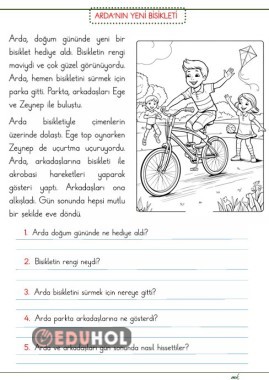 ARDA'NIN YENİ BİSİKLETİ
Arda, doğum gününde yeni bir
bisiklet hediye aldı. Bisikletin rengi
maviydi ve çok güzel görünüyordu.
Arda, hemen bisikletini sürmek için
parka gitti. Parkta, arkadaşları Ege
ve Zeynep ile buluştu.
Arda bisikletiyle çimenlerin
üzerinde dolaştı. Ege top oynarken
Zeynep de uçurtma uçuruyordu.
Arda, arkadaşlarına bisikleti ile
akrobasi hareketleri yaparak
gösteri yaptı. Arkadaşları ona
alkışladı. Gün sonunda hepsi mutlu
bir şekilde eve döndü.
1. Arda doğum gününde ne hediye aldı?
2. Bisikletin rengi neydi?
3. Arda bisikletini sürmek için nereye gitti?
4. Arda parkta arkadaşlarına ne gösterdi?
EDUHOL
5. Arda ve arkadaşları gün sonunda nasıl hissettiler?